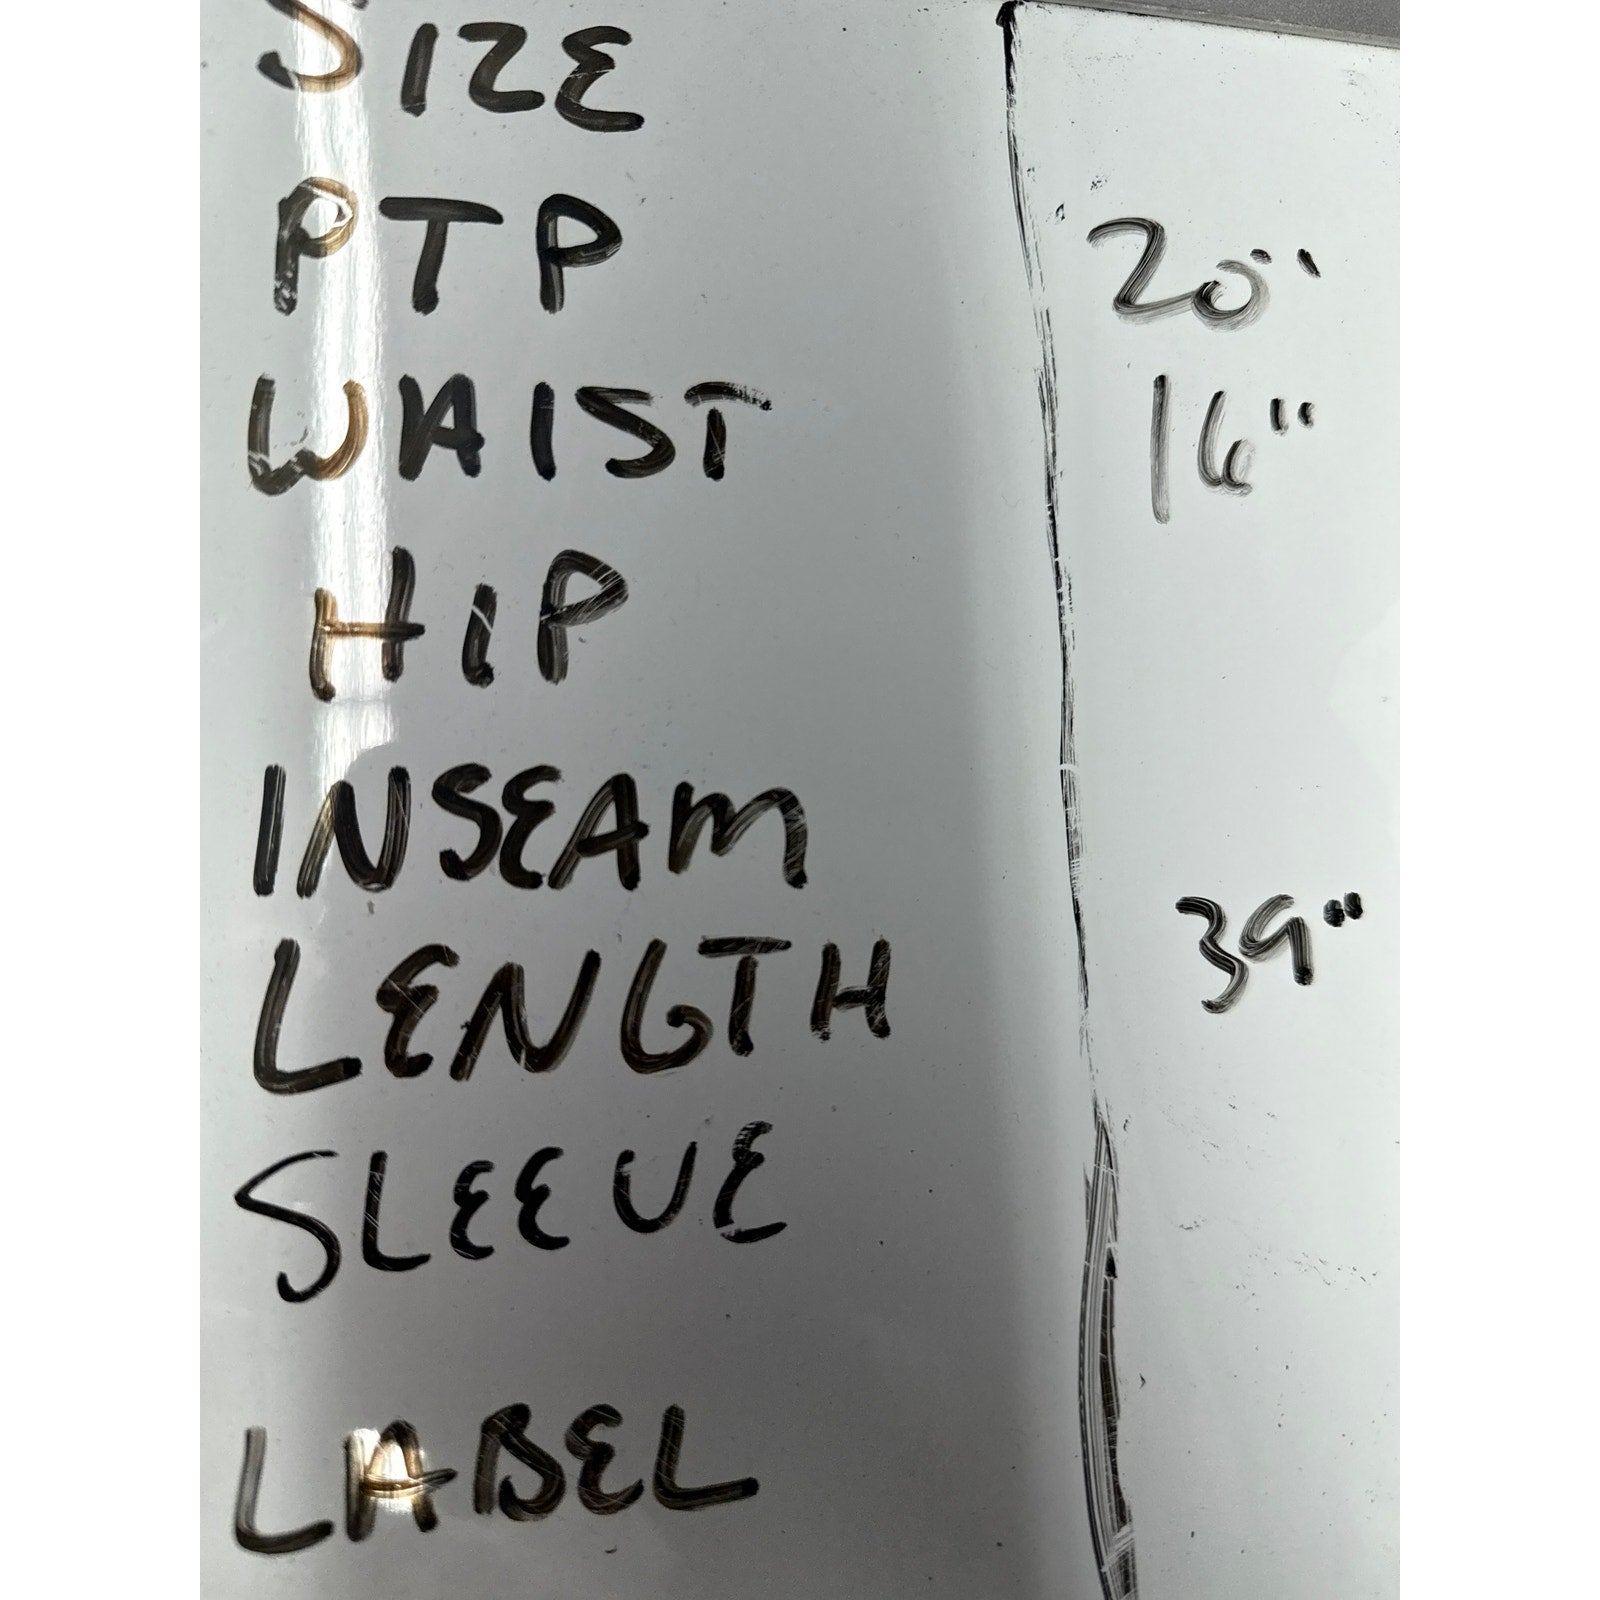 SIZE
PTP 20"
WAIST 16"
HIP
INSEAM
LENGTH 39"
SLEEVE
LABEL